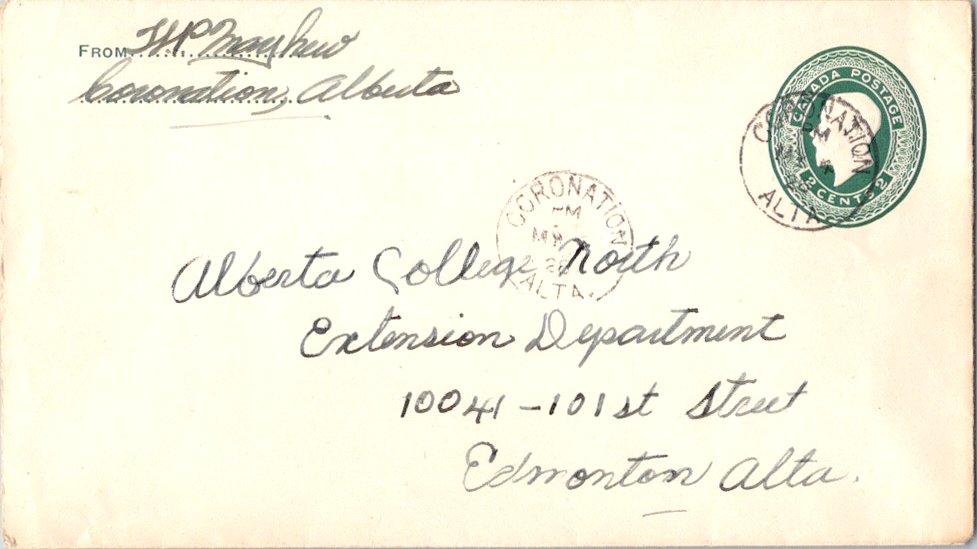 FROM W P Mayhew
Coronation, Alberta
CANADA POSTAGE
2 CENTS 2
CORONATION
PM
ALTA.
CORONATION
PM
MY
ALTA.
Alberta College North
Extension Department
10041-101st Street
Edmonton Alta.